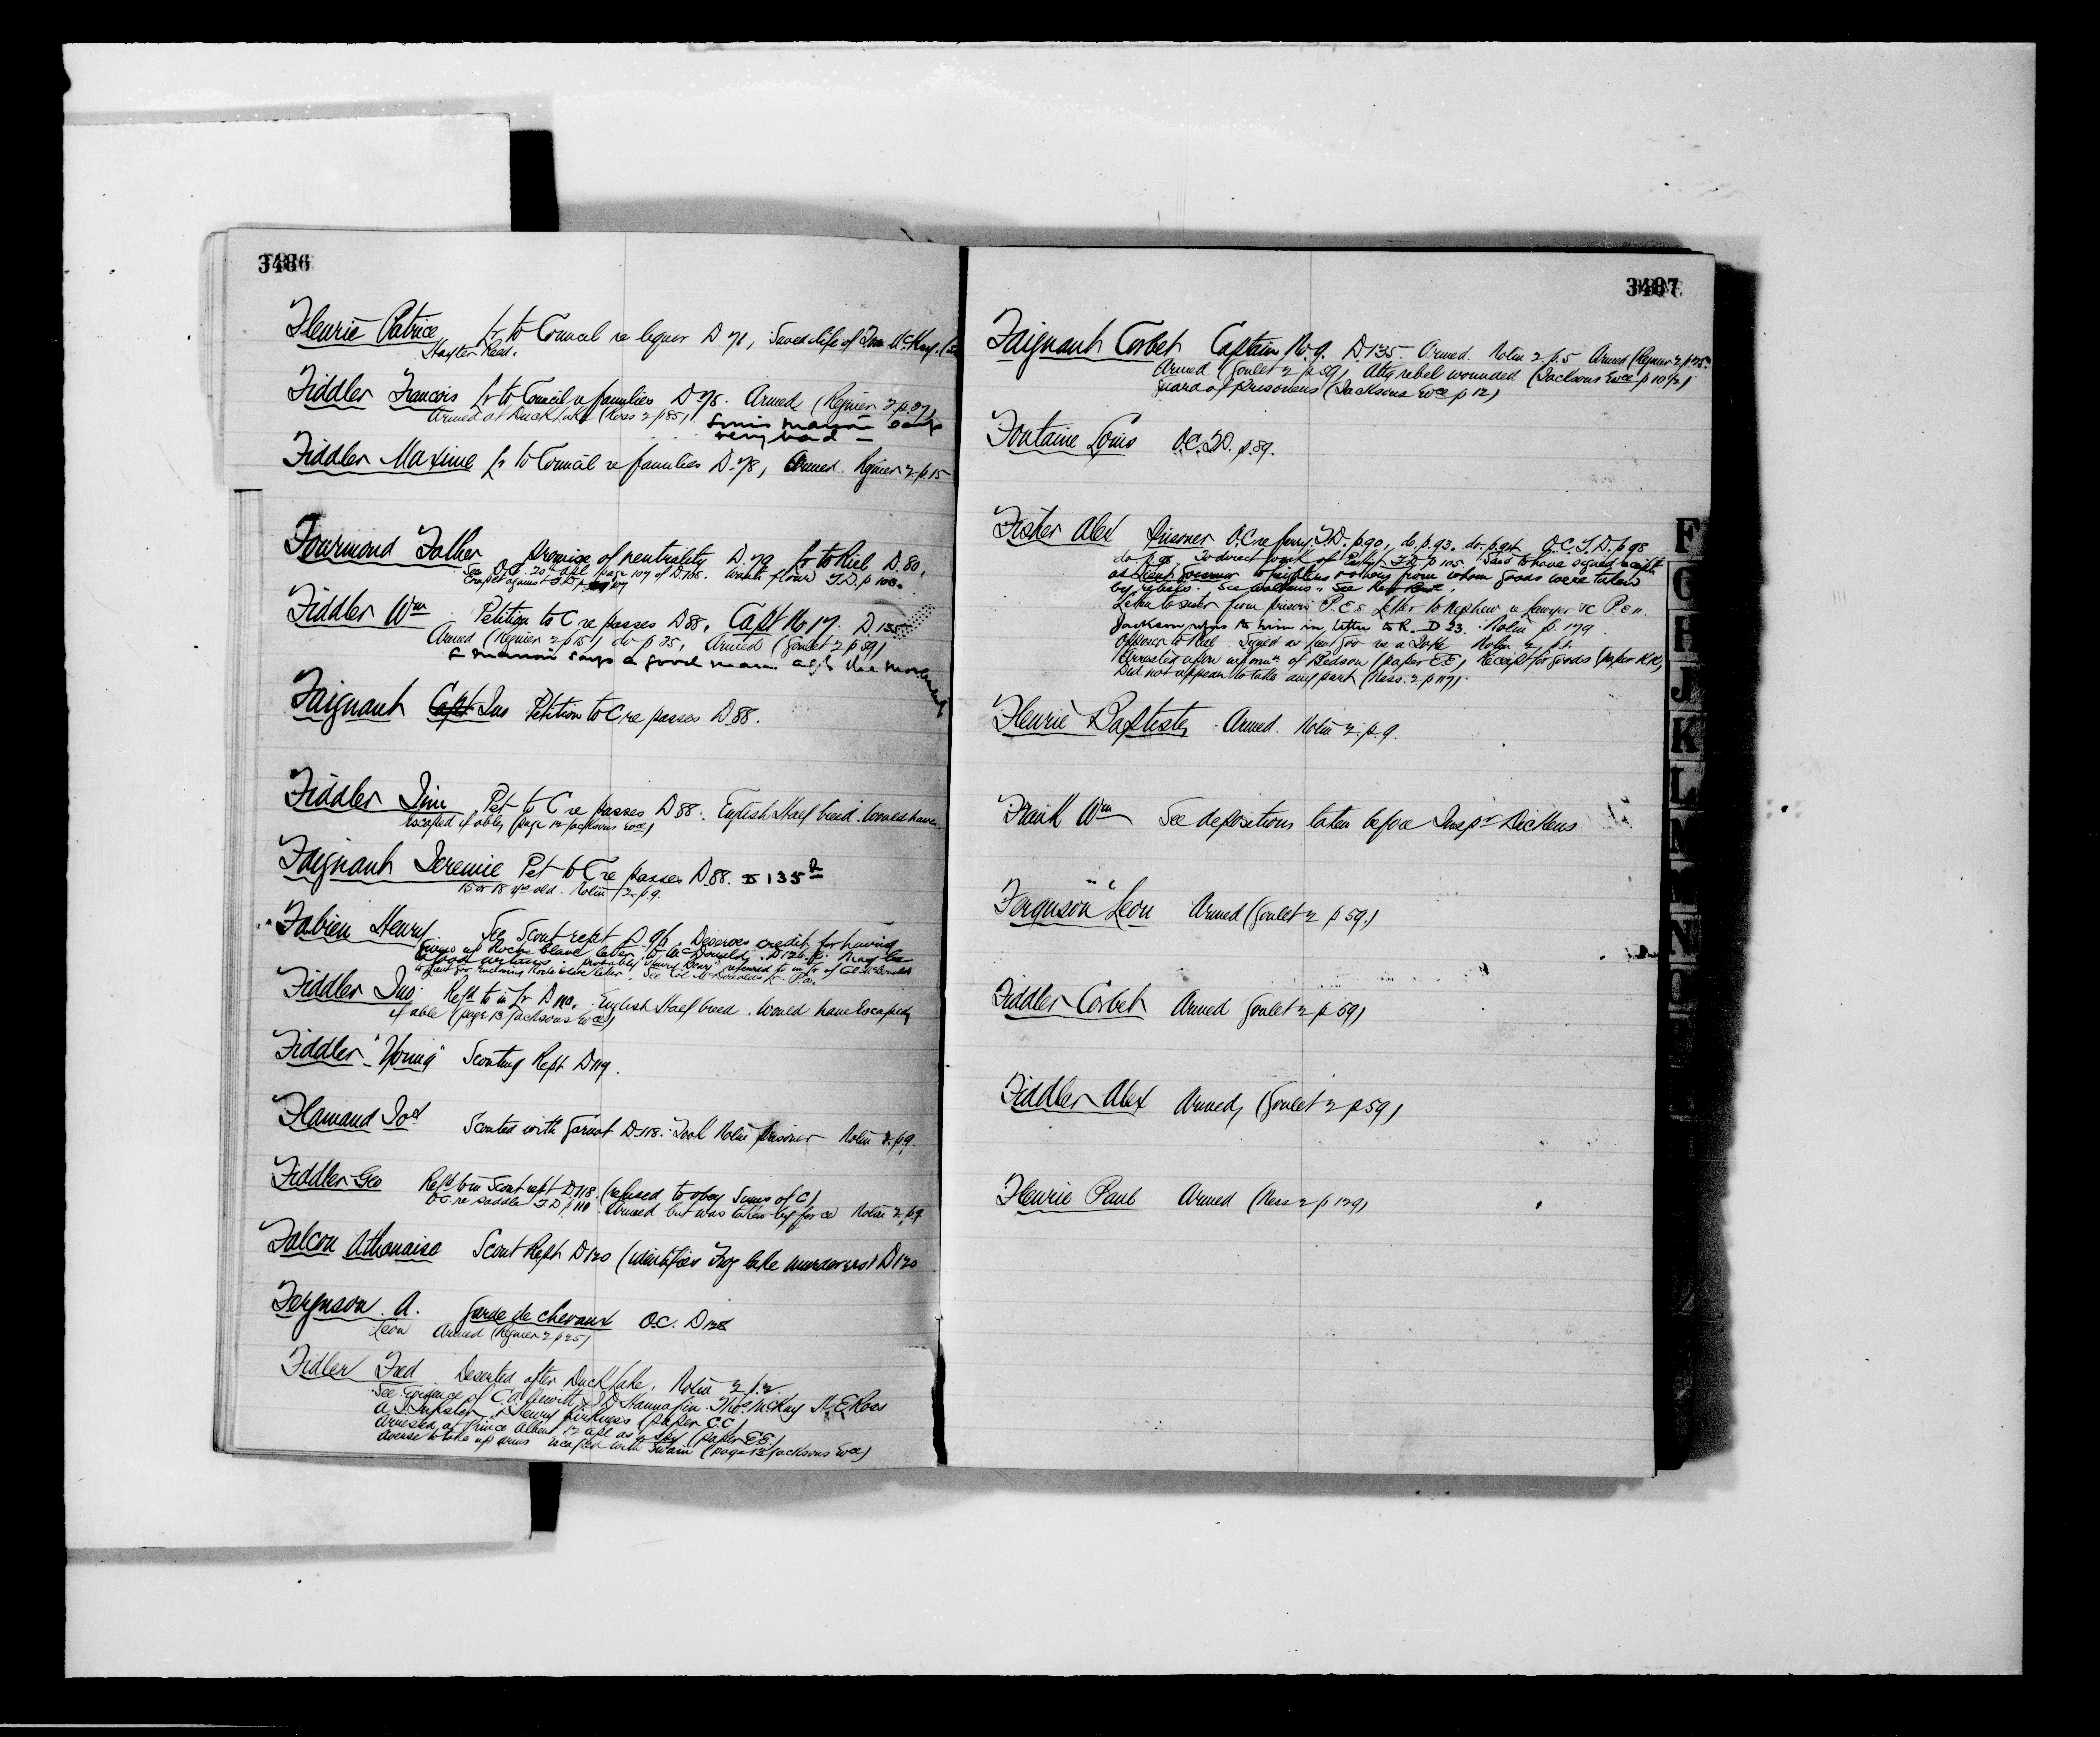 3486
Fleurie Patrice lr to Council re liquor D 71, Saved life of Thos McKay. (see
Hayter Reed.
Fiddler Francois lr to Council re families D 78. Armed (Regnier 2 p. 27)
Armed at Duck Lake (Ross 2 p 85)
very bad
Fiddler Maxime lr to Council re families D. 78, Armed. Regnier 2 p. 15
Fourmond Father promise of neutrality D. 79 lr to Riel D. 80.
See O.C. 20th Apl page 107 of D. 105. wants flour T.D. p 108.
Compt against T.D. p 107
Fiddler Wm Petition to C re passes D 88. Capt No 17. D. 135
Armed (Regnier 2 p 15) do p 25, Armed (Goulet 2 p 59)
L Marion says a good man agst the movement
Faignant Jno Petition to C re passes D 88.
Fiddler Jim Pet to C re passes D 88. English Half breed. Would have
escaped if able, (page 12 Jacksons Evce)
Faignant Jeremie Pet to C re passes D 88. D 135
15 or 18 yrs old. Nolin 2 p. 9.
Fabien Henry See Scout rept D. 96. Deserves credit for having
given up Roche blave letter to McDonald. D 126. May be
probably "Henry Dear" referred to in lr of Col McDonald
to Lieut Gov enclosing Rocheblave letter. See Col McDonalds lr P.a.
Fiddler Jno Refd to in lr D 110. English Half breed. Would have escaped
if able (page 13 Jacksons Evce)
Fiddler "Young" Scouting Rept D 119.
Flamand Jos Scouted with Garnot D. 118. Took Nolin prisoner Nolin 2 p. 9.
Fiddler Geo Refd to in Scout rept D. 118. (refused to obey Sums of C)
O.C. re saddle T D p 110 Armed but was taken by force Nolin 2 p. 9
Falcon Athanaise Scout Rept D 120 (identifies Frog Lake murderers) D 120
Ferguson A. Garde de chevaux O.C. D 128
Leon Armed (Regnier 2 p 25)
Fidler Fred Deserted after Duck Lake. Nolin 2 p. 2.
See Evidence of Hannafin. Thos McKay H. E Ross
Henry Kirkness (paper C.C)
Arrested at Prince Albert 12 apl as a spy (paper EE)
Averse to take up arms escaped with Swain (page 13 Jacksons Evce)
3487
Faignant Corbet Captain No. 9. D 135. Armed. Nolin 2 p. 5 Armed (Regnier 2 p 25
Armed (Goulet 2 p 59) Attd rebel wounded (Jacksons Evce p 10 1/2)
Guard of Prisoners (Jacksons Evce p 12)
Fontaine Louis O.C. T.D. p. 89.
Fisher Alex Prisoner O.C re ferry. T.D. p 90, do p. 93. do. p. 94 O.C. T.D. p 98
do p. 98. To direct work of T.D. p 105. Said to have signed receipts
as Lieut Governor to others from whom goods were taken
by rebels. See Walters. See
Letter to sister from prison P.C 5. Letter to Nephew re lawyer &c P.C 11.
Jackson refers to him in letter to R. D 23. Nolin p. 179
Opposer to Riel. Signed as Lieut Gov as a joke Nolin 2, p 2.
Arrested upon informn of Redson (paper EE) Receipt for goods (paper KK)
Did not appear to take any part (Ness. 2 p 117).
Fleurie Baptiste Armed. Nolin 2. p. 9.
Frank Wm See depositions taken before Inspr Dickens
Ferguson Leon Armed (Goulet 2 p 59.)
Fiddler Corbet Armed Goulet 2 p 59)
Fiddler Alex Armed, (Goulet 2 p 59)
Fleurie Paul Armed (Ness 2 p 129)
F
G
H
J
K
L
M
N
O